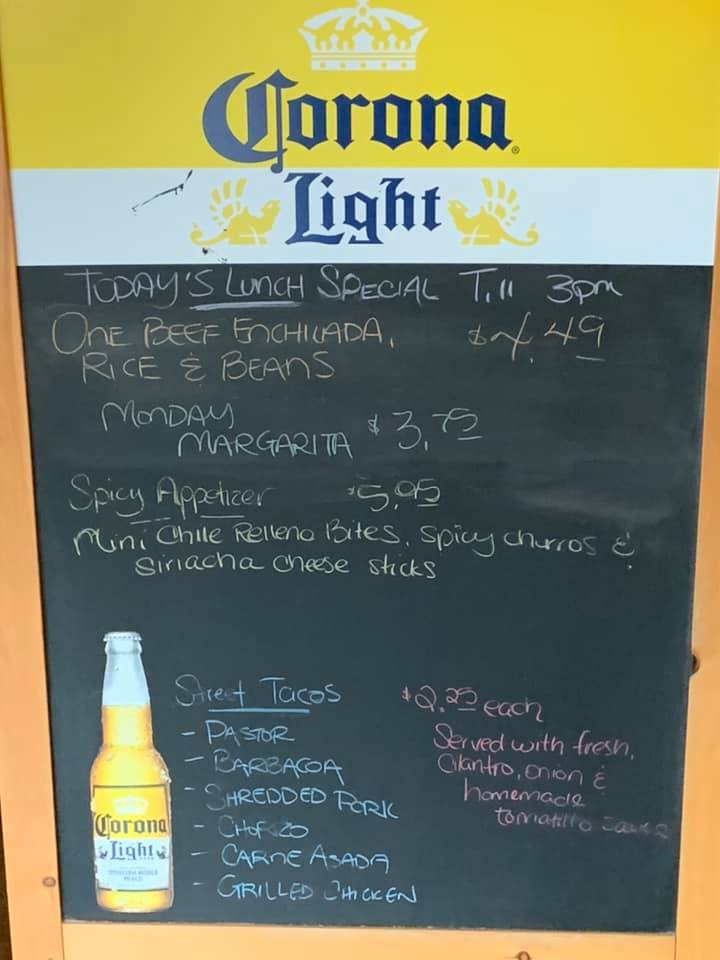 Corona
Light
TODAY'S LUNCH SPECIAL Till 3pm
ONE BEEF ENCHILADA, $4.49
RICE & BEANS
MONDAY
MARGARITA $3.75
Spicy Appetizer $5.95
Mini Chile Relleno Bites, Spicy churros &
Siriacha cheese sticks
Street Tacos $2.25 each
- PASTOR
Served with fresh,
- BARBACOA
Cilantro, onion &
- SHREDDED PORK
homemade
tomatillo sauce
- CHORIZO
- CARNE ASADA
- GRILLED CHICKEN
Corona
Light